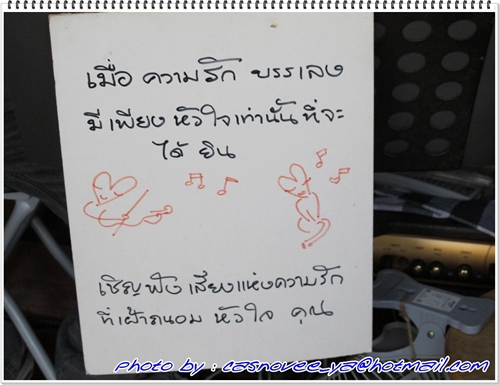 เมื่อ ความรัก บรรเลง
มีเพียง หัวใจเท่านั้น ที่จะ
ได้ ยิน
เชิญฟัง เสียงแห่งความรัก
ที่เฝ้าถนอม หัวใจ คุณ
photo by : casnovee_ya@hotmail.com